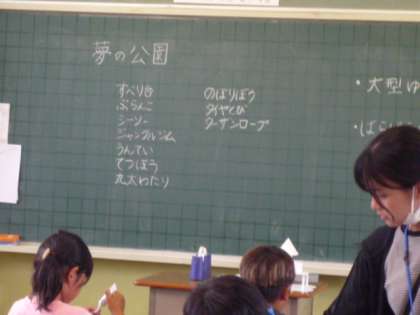 夢の公園
すべり台
ぶらんこ
シーソー
ジャングルジム
うんてい
てつぼう
丸太わたり
のぼりぼう
タイヤとび
ターザンロープ
・大型ゆ
・ばら